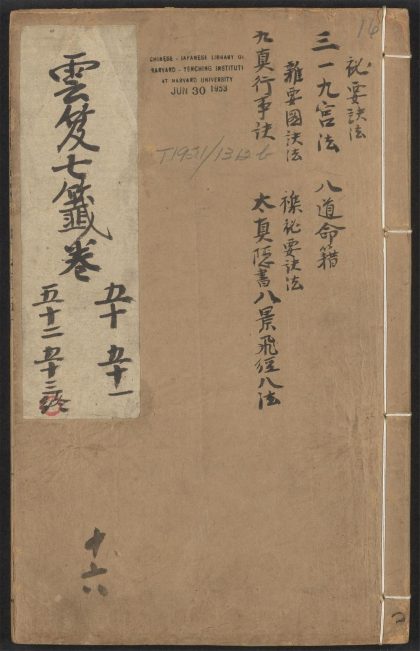 16
祕要訣法
三一九宮法 八道命籍
雜要國訣法 襍祕要訣法
九真行事訣 太真隱書八景飛經八法
CHINESE - JAPANESE LIBRARY OF
HARVARD - YENCHING INSTITUTE
AT HARVARD UNIVERSITY
JUN 30 1953
雲笈七籤卷
五十 五十一
五十二 五十三終
十六